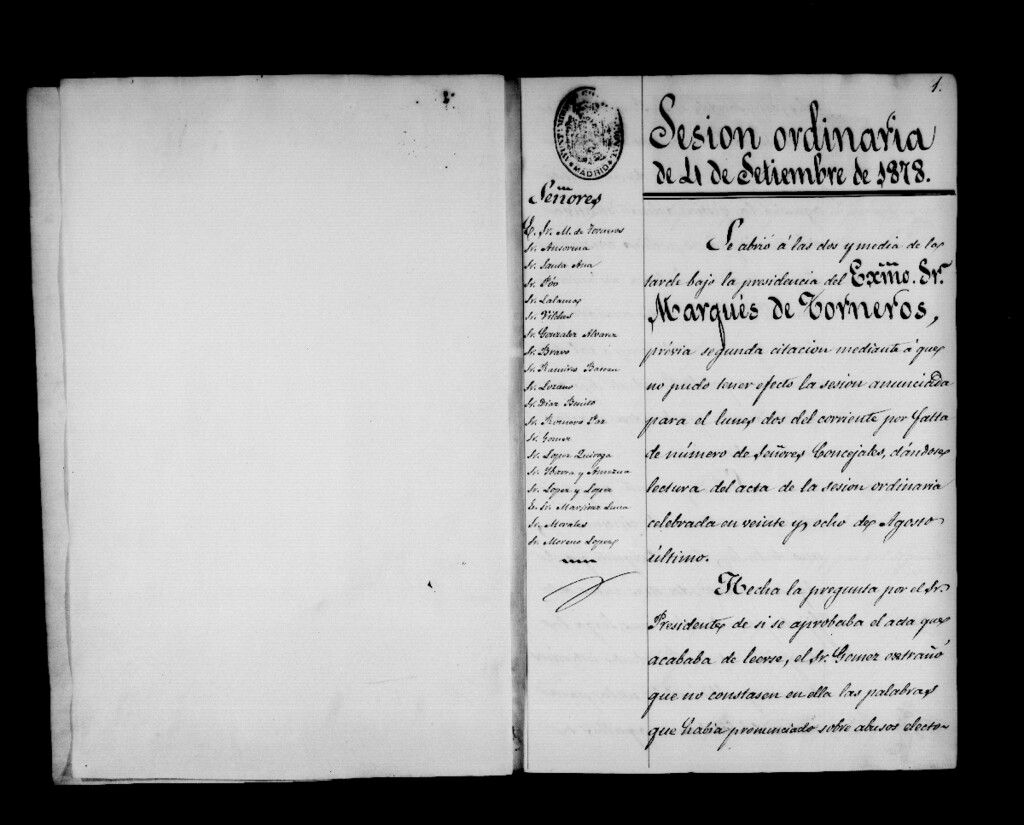 1.
MADRID
Sesion ordinaria
de 4 de Setiembre de 1878.
Señores
E. Sr. M. de Torneros
Sr. Ansorena
Sr. Santa Ana
Sr. Póo
Sr. Salamos
Sr. Vilches
Sr. Gonzalez Alvarez
Sr. Bravo
Sr. Ramires
Sr. Lozano
Sr. Diaz Benito
Sr. Romero Paz
Sr. Gomez
Sr. Lopez Quiroga
Sr. Ybarra y Amezua
Sr. Lopez y Lopez
E. Sr. Martinez Luna
Sr. Morales
Sr. Moreno Lopez
Se abrió á las dos y media de la
tarde bajo la presidencia del Exmo. Sr.
Marqués de Torneros,
prévia segunda citacion mediante á que
no pudo tener efecto la sesion anunciada
para el lunes dos del corriente por falta
de número de Señores Concejales, dándose
lectura del acta de la sesion ordinaria
celebrada en veinte y ocho de Agosto
último.
Hecha la pregunta por el Sr.
Presidente de si se aprobaba el acta que
acababa de leerse, el Sr. Gomez extrañó
que no constasen en ella las palabras
que habia pronunciado sobre abusos electo-